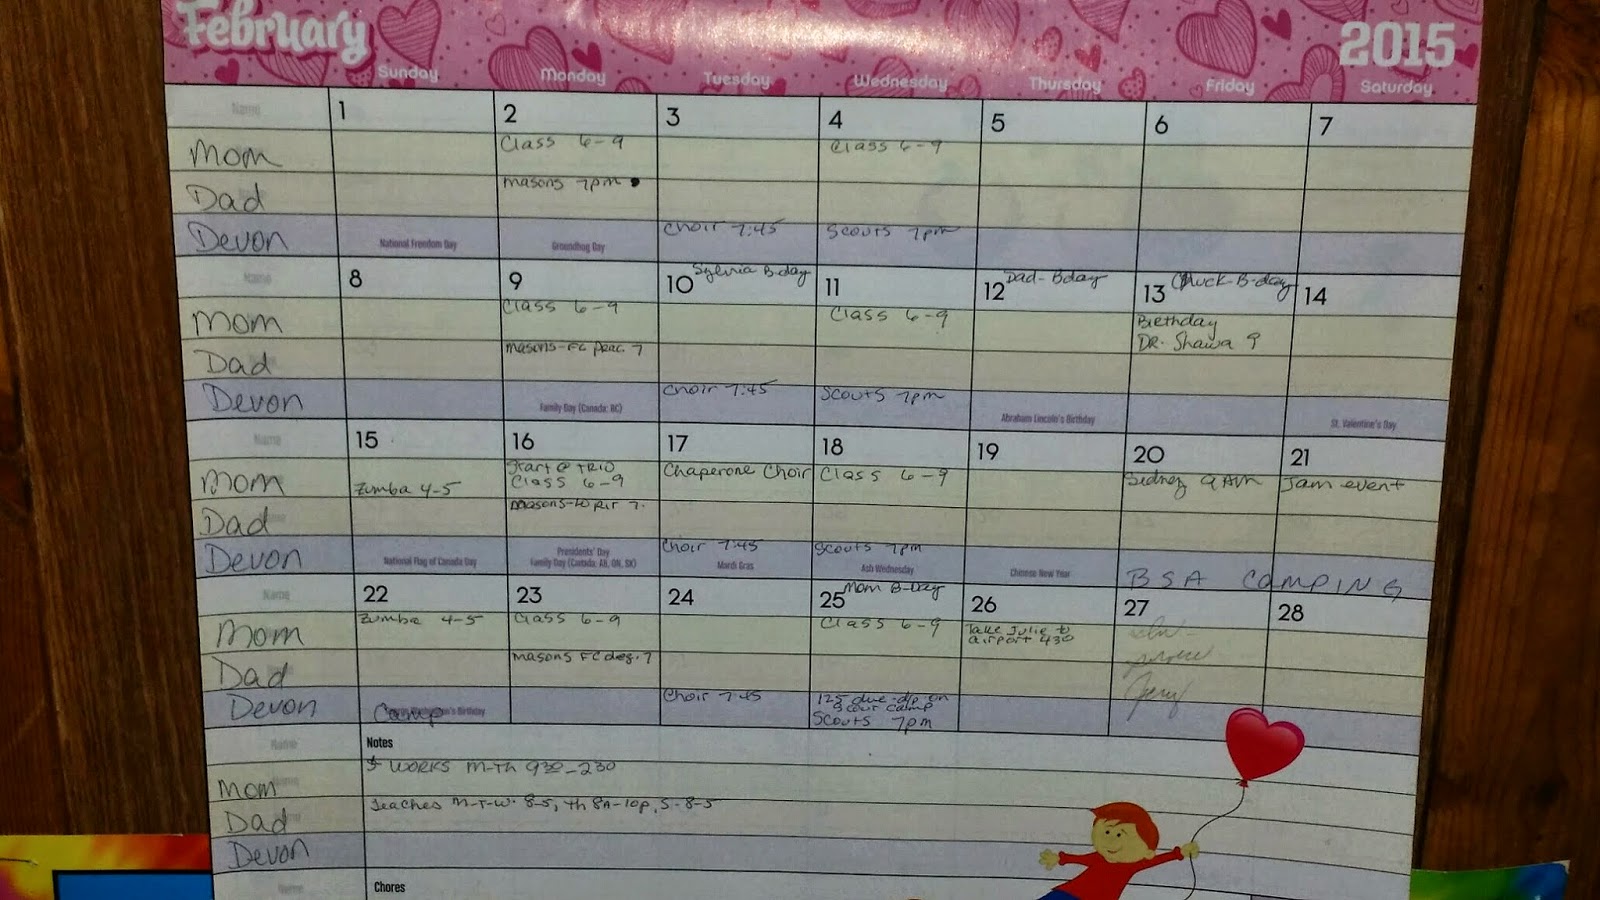 February 2015
Sunday Monday Tuesday Wednesday Thursday Friday Saturday
Name 1 2 3 4 5 6 7
Mom Class 6-9 Class 6-9
Dad Masons 7pm
Devon Choir 7:45 Scouts 7pm
National Freedom Day Groundhog Day
Name 8 9 10 Sylvia B-day 11 12 Dad-Bday 13 Chuck B-day 14
Mom Class 6-9 Class 6-9 Birthday
DR. Shawa 9
Dad Masons-FC prac. 7
Devon Choir 7:45 Scouts 7pm
Family Day (Canada: BC) Abraham Lincoln's Birthday St. Valentine's Day
Name 15 16 17 18 19 20 21
Start @ TRIO
Mom Zumba 4-5 Class 6-9 Chaperone Choir Class 6-9 Sidney 9 AM Jam event
Dad Masons- 7.
Devon Choir 7:45 Scouts 7pm BSA CAMPING
National Flag of Canada Day Presidents' Day Mardi Gras Ash Wednesday Chinese New Year
Family Day (Canada: AB, ON, SK)
Name 22 23 24 25 Mom B-Day 26 27 28
Mom Zumba 4-5 Class 6-9 Class 6-9 Take Julie to
airport 430
Dad Masons FC deg. 7
Devon Camp Choir 7:45 125 due on
Scout Camp
Scouts 7pm
Birthday
Name Notes
Mom WORKS M-Th 930-230
Dad Teaches M-T-W. 8-5, Th 8A-10p, S-8-5
Devon
Name Chores